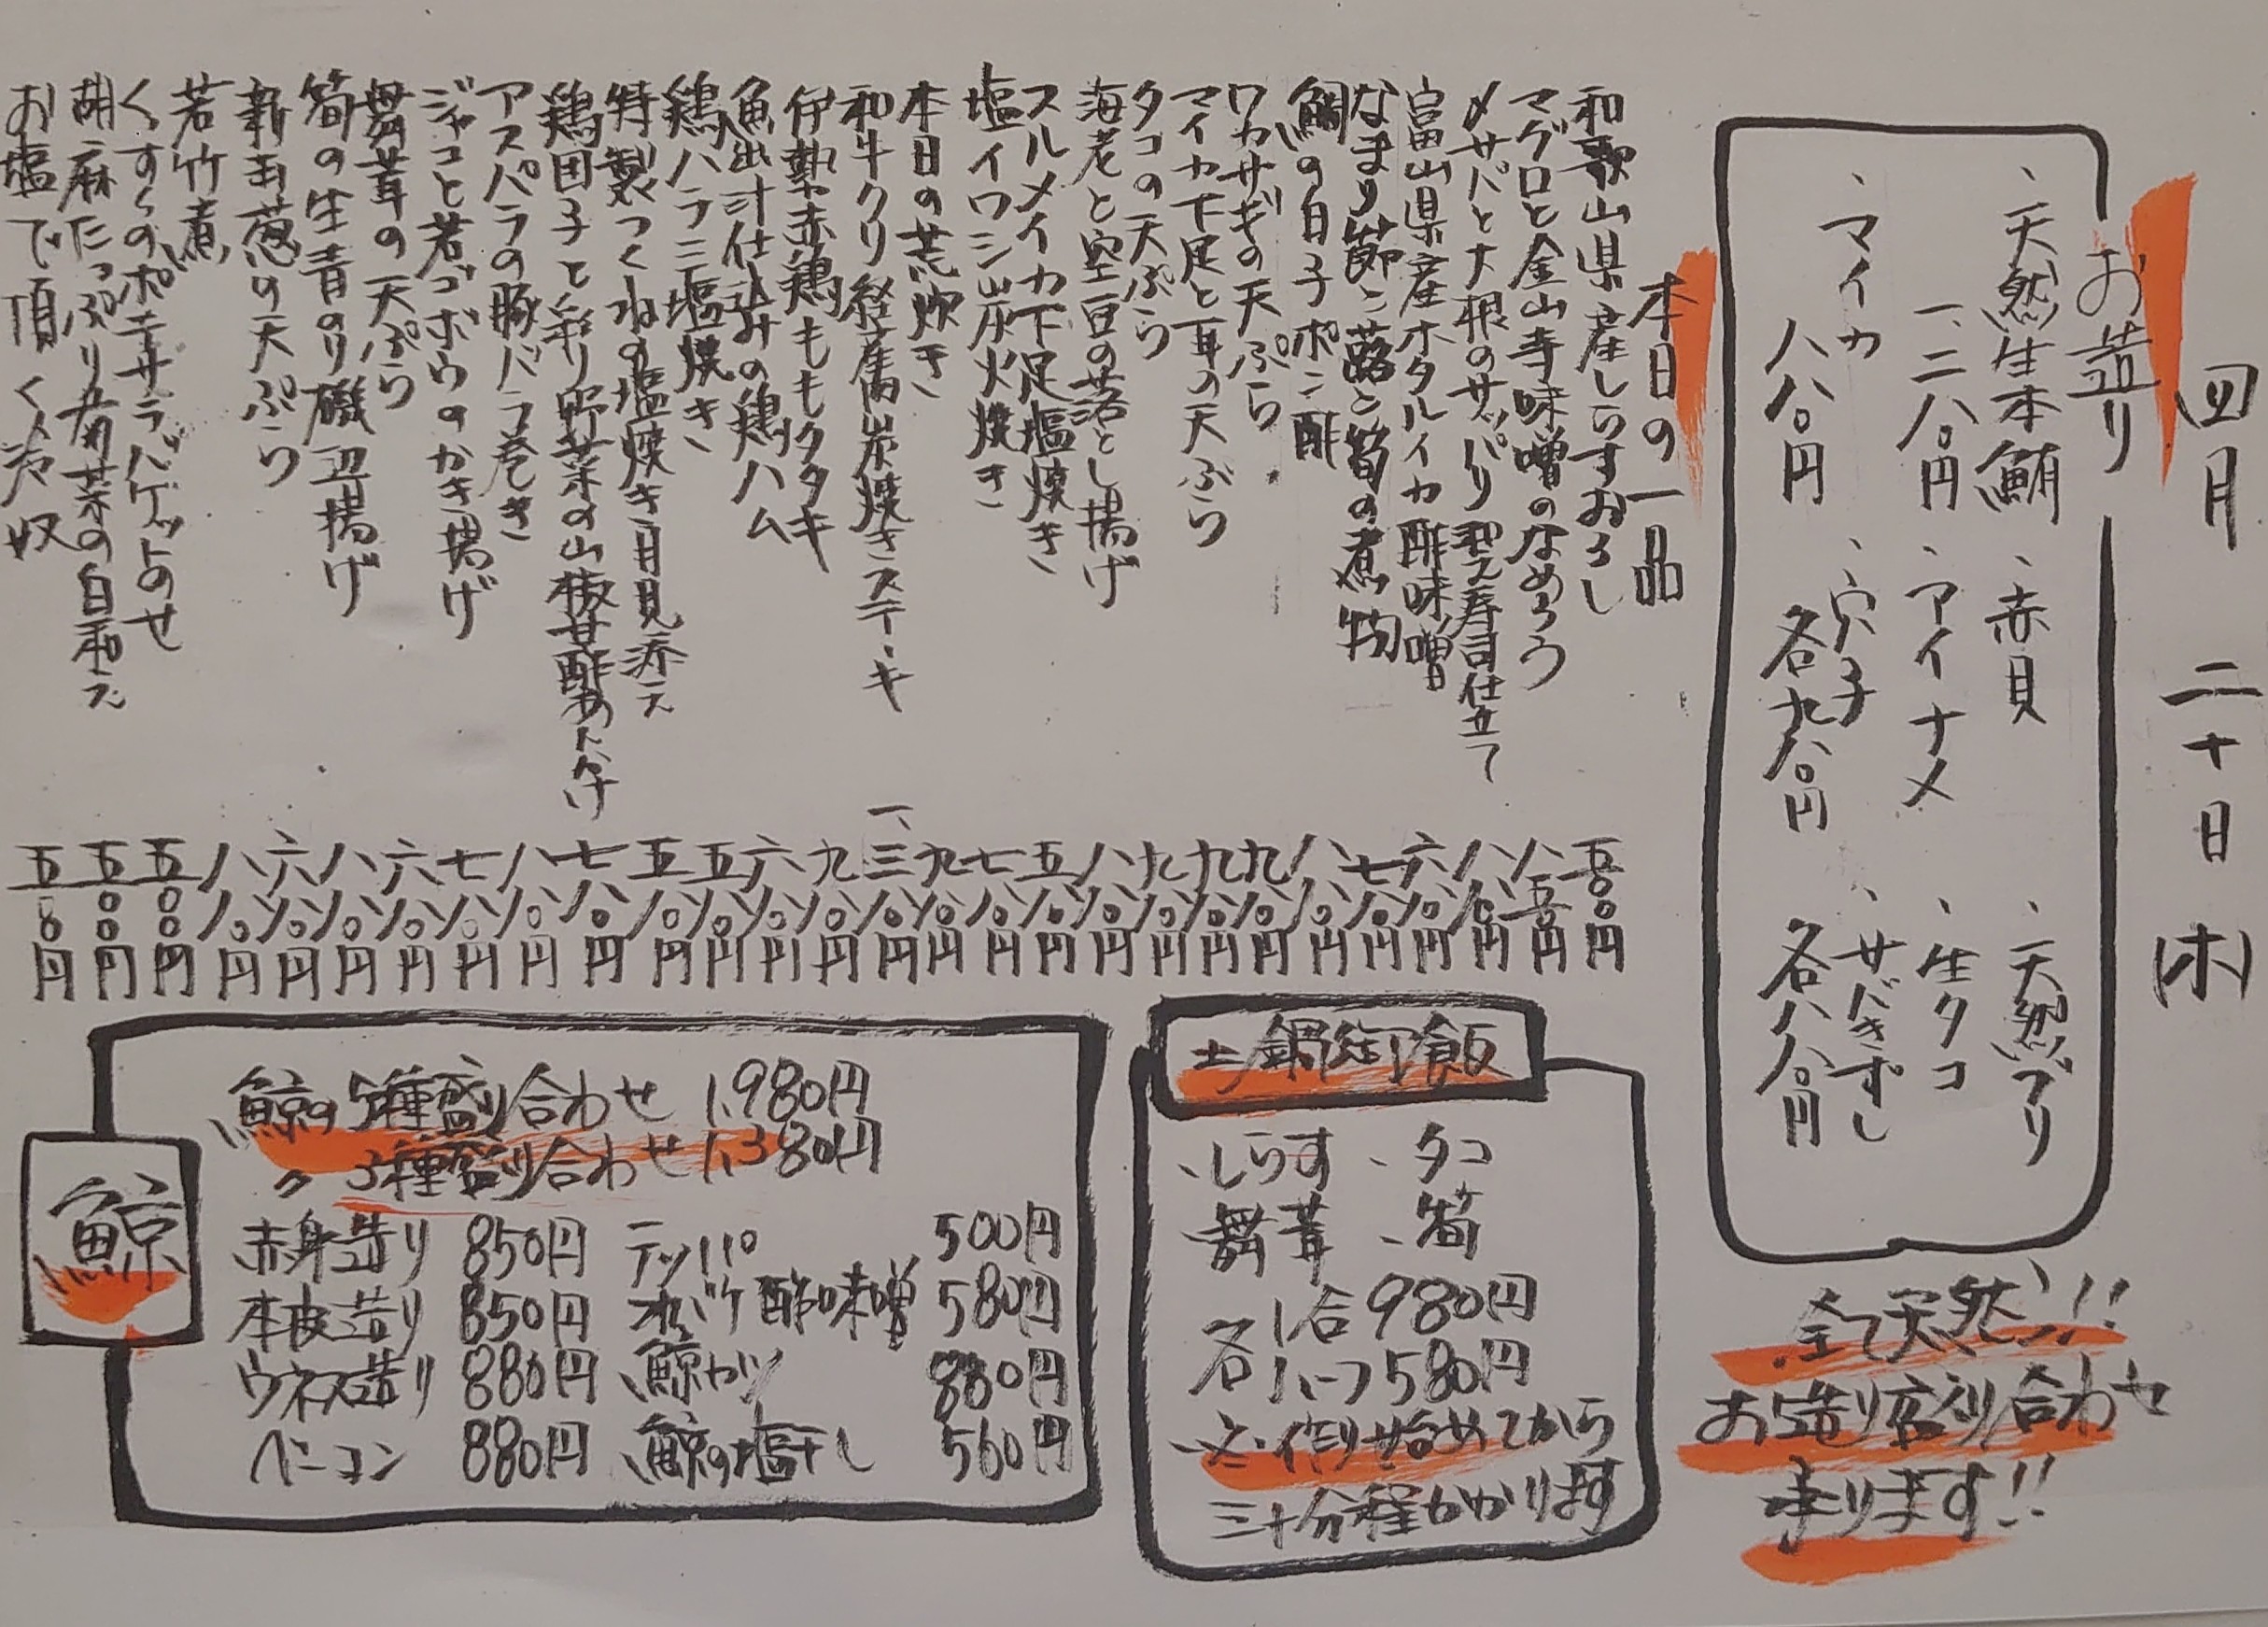 四月 二十日 (木)
お造り
、天然生本鮪 、赤貝 、天然ブリ
一、二八〇円 、アイナメ 、生タコ
、マイカ 、穴子 、サバきずし
八八〇円 各九八〇円 各八八〇円
全て天然!!
お造り盛り合わせ
承ります!!
本日の一品
和歌山県産しらすおろし 五〇〇円
マグロと金山寺味噌のなめろう 八五〇円
〆サバと大根のサッパリ押え寿司仕立て 八八〇円
富山県産ホタルイカ酢味噌 六八〇円
なまり節と蕗と筍の煮物 七八〇円
鯛の白子ポン酢 八八〇円
ワカサギの天ぷら 九八〇円
マイカ下足と耳の天ぷら 九八〇円
タコの天ぷら 九八〇円
海老と空豆の落とし揚げ 八八〇円
スルメイカ下足塩焼き 五八〇円
塩イワシ炭火焼き 七八〇円
本日の荒炊き 九八〇円
和牛クリ 炭焼きステーキ 一、三八〇円
伊勢赤鶏ももタタキ 九八〇円
魚出汁仕込みの鶏ハム 六八〇円
鶏ハラミ塩焼き 五八〇円
特製つくねの塩焼き月見添え 五八〇円
鶏団子と彩り野菜の山椒甘酢あんかけ 七八〇円
アスパラの豚バラ巻き 八八〇円
ジャコと若ゴボウのかき揚げ 七八〇円
舞茸の天ぷら 六八〇円
筍の生青のり磯辺揚げ 八八〇円
新玉葱の天ぷら 六八〇円
若竹煮 八八〇円
くずくのポテサラバゲットのせ 五〇〇円
胡麻たっぷり菊菜の白和え 五〇〇円
お塩で頂く冷奴 五〇〇円
土鍋御飯
、しらす 、タコ
舞茸 、筍
各1合 980円
各1/2つ 580円
※作り始めてから
三十分程かかります
鯨
鯨の5種盛り合わせ 1,980円
〃 3種盛り合わせ 1,380円
赤身造り 850円 テッパ 500円
本皮造り 850円 オバケ酢味噌 580円
ウネス造り 880円 鯨カツ 880円
ベーコン 880円 鯨の塩干し 560円